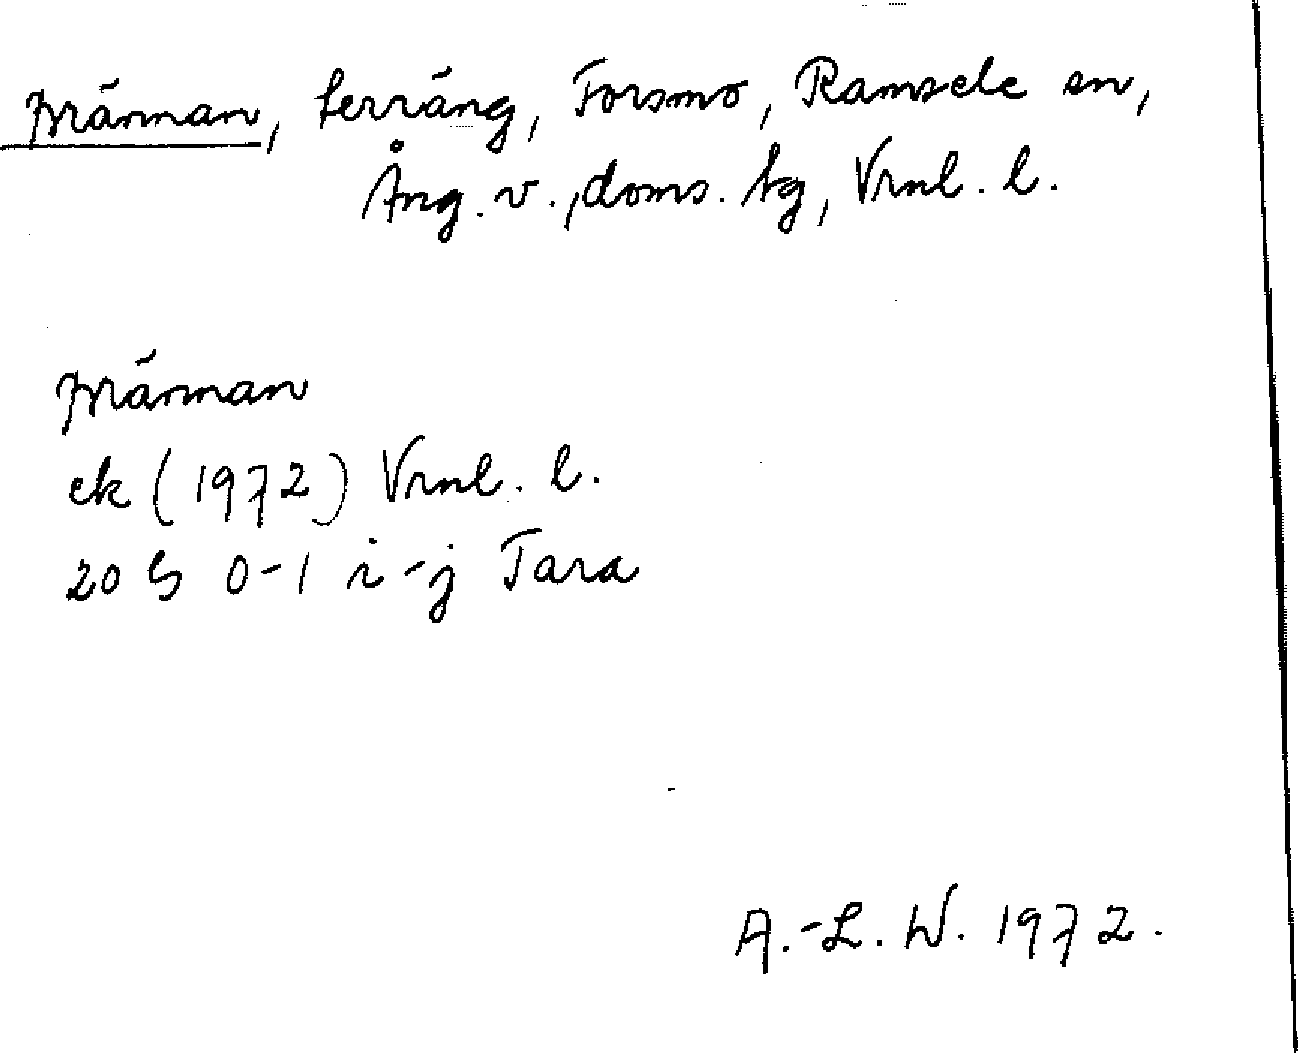 , terräng, Forsmo, Ramsele sn,
Ång. v., doms. tg, Vrnl. l.
ek (1972) Vrnl. l.
20 G 0-1 i-j Tara
A.-L. W. 1972.